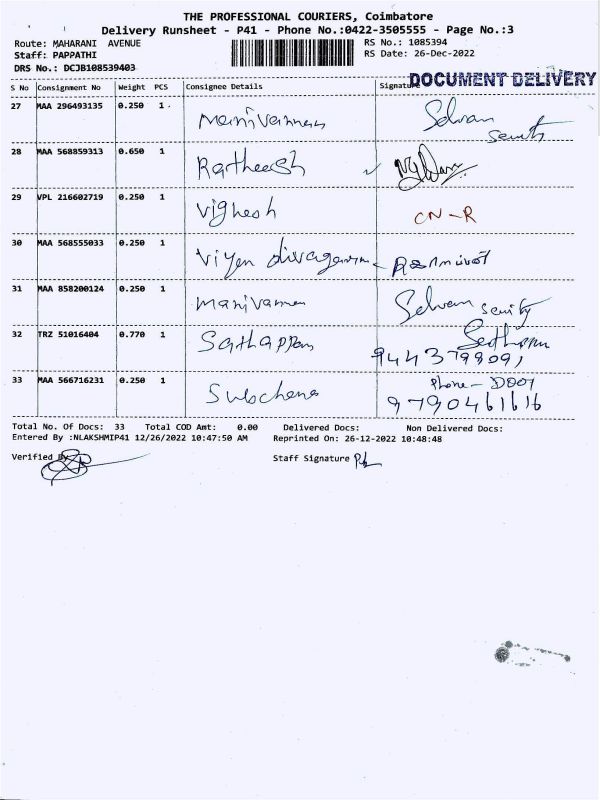 THE PROFESSIONAL COURIERS, Coimbatore
Delivery Runsheet - P41 - Phone No.:0422-3505555 - Page No.:3
Route: MAHARANI AVENUE RS No.: 1085394
Staff: PAPPATHI RS Date: 26-Dec-2022
DRS No.: DCJB108539403
DOCUMENT DELIVERY
S No Consignment No Weight PCS Consignee Details Signature
27 MAA 296493135 0.250 1 Manivannan Selvan
28 MAA 568859313 0.650 1 Ratheesh
29 VPL 216602719 0.250 1 Vighesh CN-R
30 MAA 568555033 0.250 1
31 MAA 858200124 0.250 1 Manivannan Selvan
32 TRZ 51016404 0.770 1 Sathappan
33 MAA 566716231 0.250 1 Phone - Door
9790461616
Total No. Of Docs: 33 Total COD Amt: 0.00 Delivered Docs: Non Delivered Docs:
Entered By :NLAKSHMIP41 12/26/2022 10:47:50 AM Reprinted On: 26-12-2022 10:48:48
Verified By Staff Signature